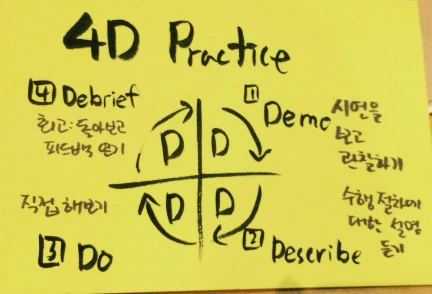 4D Practice
1 Demo
시연을
보고
관찰하기
2 Describe
수행 절차에
대한 설명
듣기
3 Do
직접 해보기
4 Debrief
회고: 돌아보고
피드백 얻기
D D
D D